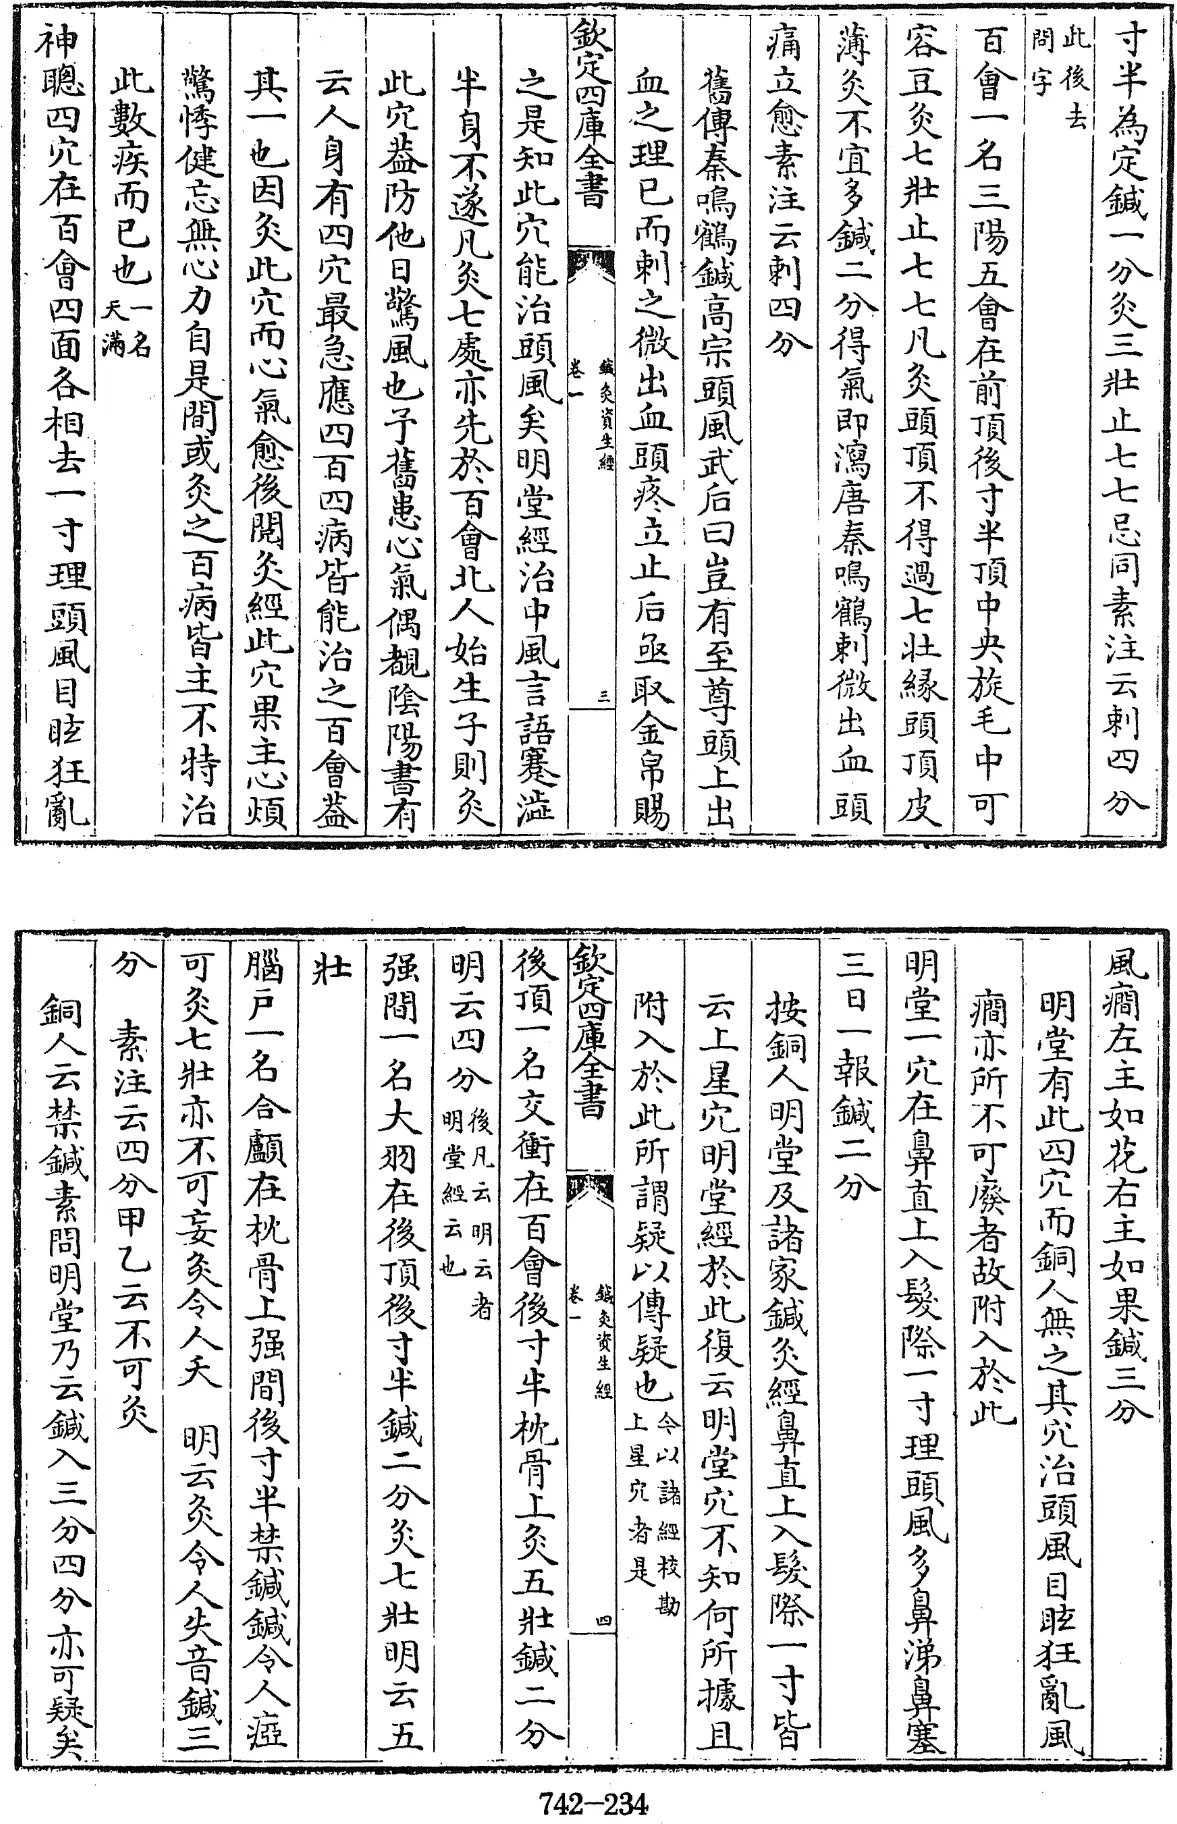 寸半為定鍼一分灸三壯止七七忌同素注云刺四分
此後去
問字
百會一名三陽五會在前頂後寸半頂中央旋毛中可
容豆灸七壯止七七凡灸頭頂不得過七壯緣頭頂皮
薄灸不宜多鍼二分得氣即瀉唐秦鳴鶴刺微出血頭
痛立愈素注云刺四分
舊傳秦鳴鶴鍼高宗頭風武后曰豈有至尊頭上出
血之理已而刺之微出血頭疼立止后亟取金帛賜
欽定四庫全書
鍼灸資生經
卷一
三
之是知此穴能治頭風矣明堂經治中風言語蹇澁
半身不遂凡灸七處亦先於百會北人始生子則灸
此穴葢防他日驚風也予舊患心氣偶覩陰陽書有
云人身有四穴最急應四百四病皆能治之百會葢
其一也因灸此穴而心氣愈後閱灸經此穴果主心煩
驚悸健忘無心力自是間或灸之百病皆主不特治
此數疾而已也
一名
天滿
神聰四穴在百會四面各相去一寸理頭風目眩狂亂
風癇左主如花右主如果鍼三分
明堂有此四穴而銅人無之其穴治頭風目眩狂亂風
癇亦所不可廢者故附入於此
明堂一穴在鼻直上入髮際一寸理頭風多鼻涕鼻塞
三日一報鍼二分
按銅人明堂及諸家鍼灸經鼻直上入髮際一寸皆
云上星穴明堂經於此復云明堂穴不知何所據且
附入於此所謂疑以傳疑也
今以諸經校勘
上星穴者是
欽定四庫全書
鍼灸資生經
卷一
四
後頂一名交衝在百會後寸半枕骨上灸五壯鍼二分
明云四分
後凡云明云者
明堂經云也
强間一名大羽在後頂後寸半鍼二分灸七壯明云五
壯
腦戸一名合顱在枕骨上强間後寸半禁鍼鍼令人瘂
可灸七壯亦不可妄灸令人夭 明云灸令人失音鍼三
分 素注云四分甲乙云不可灸
銅人云禁鍼素問明堂乃云鍼入三分四分亦可疑矣
742-234